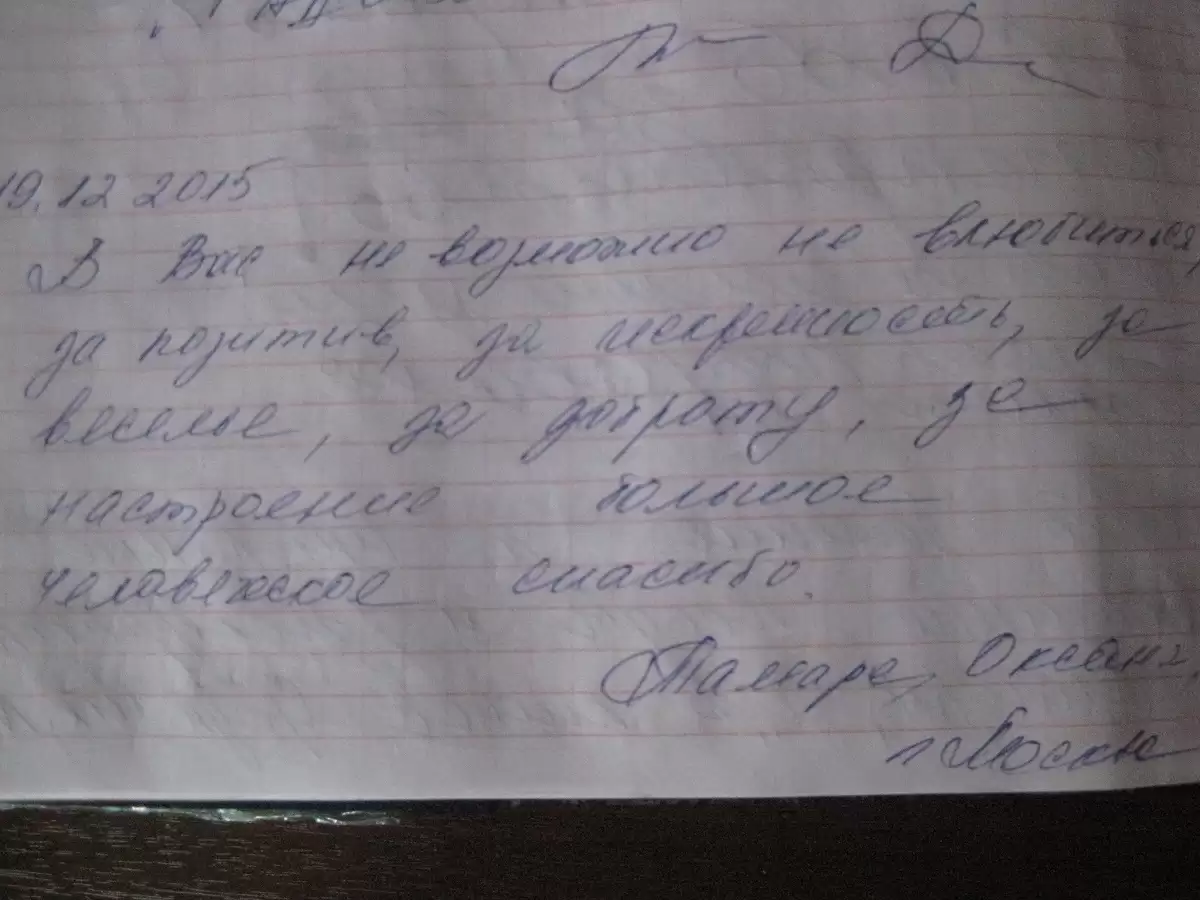 19.12 2015
В Вас не возможно не влюбиться,
за позитив, за искренность, за
веселье, за доброту, за
настроение большое
человеческое спасибо.
Тамара, Оксана,
г Москва